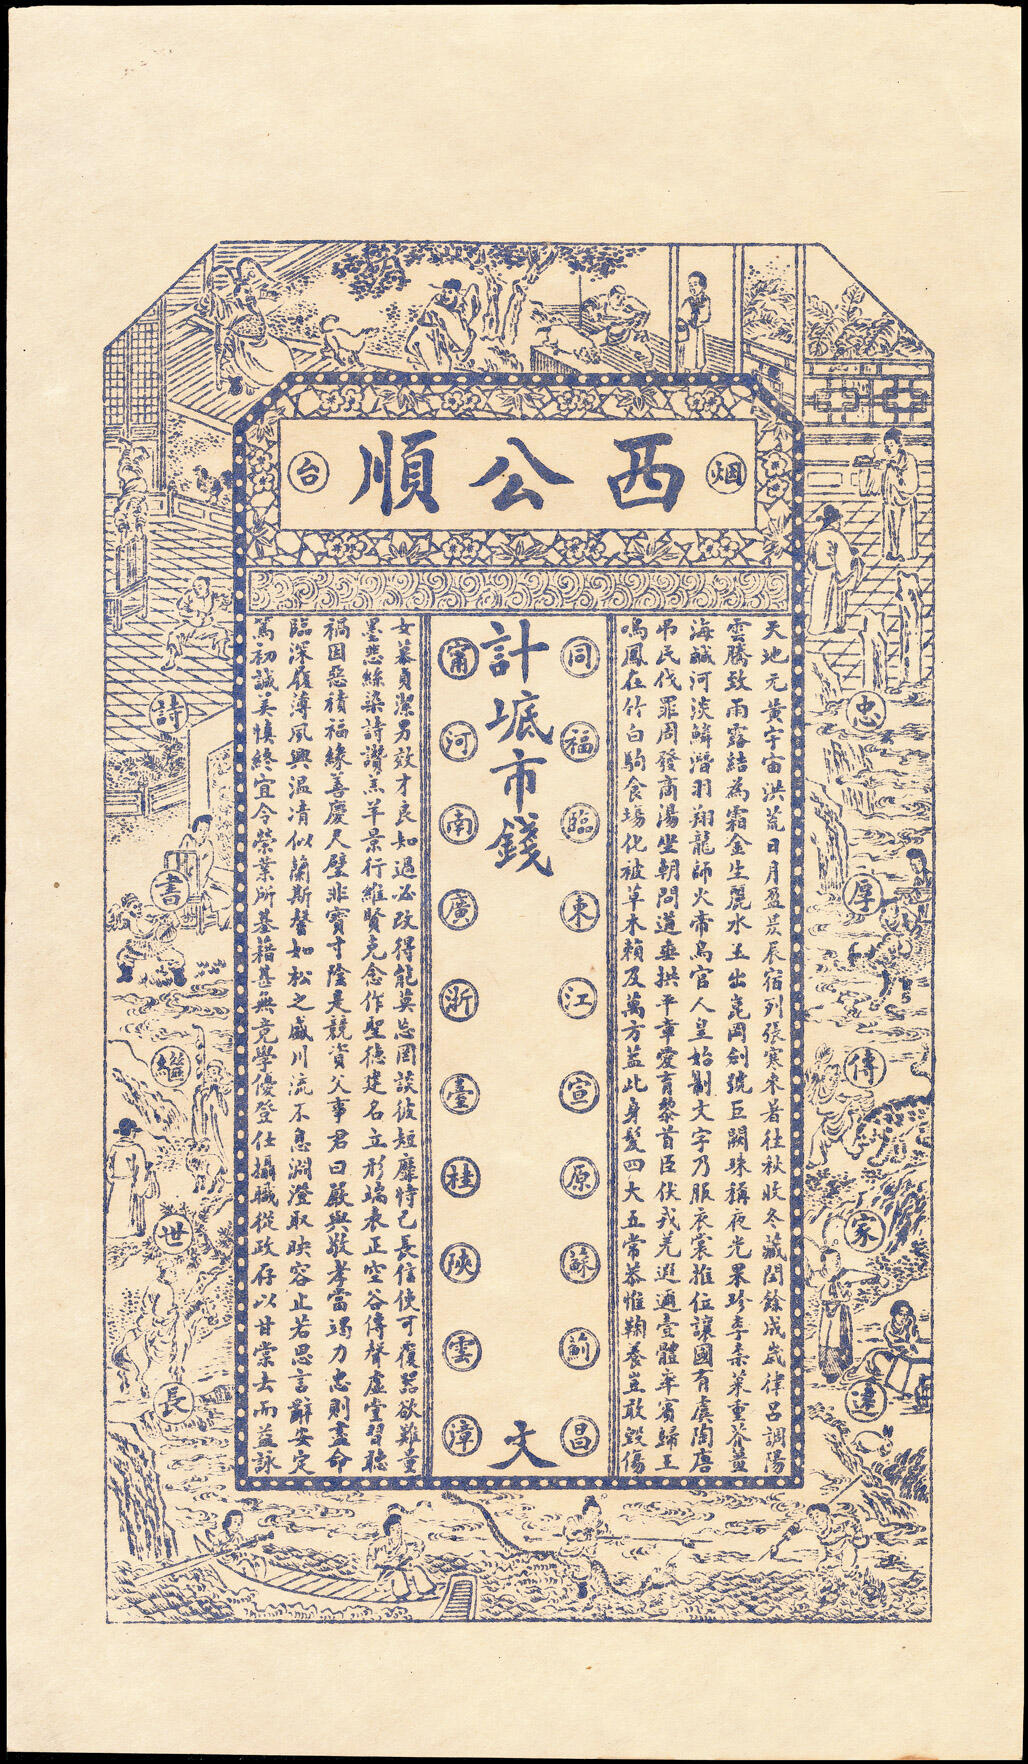 烟西公順台
忠厚傳家遠
天地元黃宇宙洪荒日月盈昃辰宿列張寒來暑往秋收冬藏閏餘成歲律呂調陽
雲騰致雨露結為霜金生麗水玉出崑岡劍號巨闕珠稱夜光果珍李柰菜重芥薑
海鹹河淡鱗潛羽翔龍師火帝鳥官人皇始制文字乃服衣裳推位讓國有虞陶唐
吊民伐罪周發商湯坐朝問道垂拱平章愛育黎首臣伏戎羌遐邇壹體率賓歸王
鳴鳳在竹白駒食場化被草木賴及萬方蓋此身髮四大五常恭惟鞠養豈敢毀傷
同福臨東江宣原蘇薊昌
計市錢文
甯河南廣浙臺桂陝雲漳
女慕貞潔男效才良知過必改得能莫忘罔談彼短靡恃己長信使可覆器欲難量
墨悲絲染詩讚羔羊景行維賢克念作聖德建名立形端表正空谷傳聲虛堂習聽
禍因惡積福緣善慶尺璧非寶寸陰是競資父事君曰嚴與敬孝當竭力忠則盡命
臨深履薄夙興溫凊似蘭斯馨如松之盛川流不息淵澄取映容止若思言辭安定
篤初誠美慎終宜令榮業所基藉甚無竟學優登仕攝職從政存以甘棠去而益詠
詩書繼世長